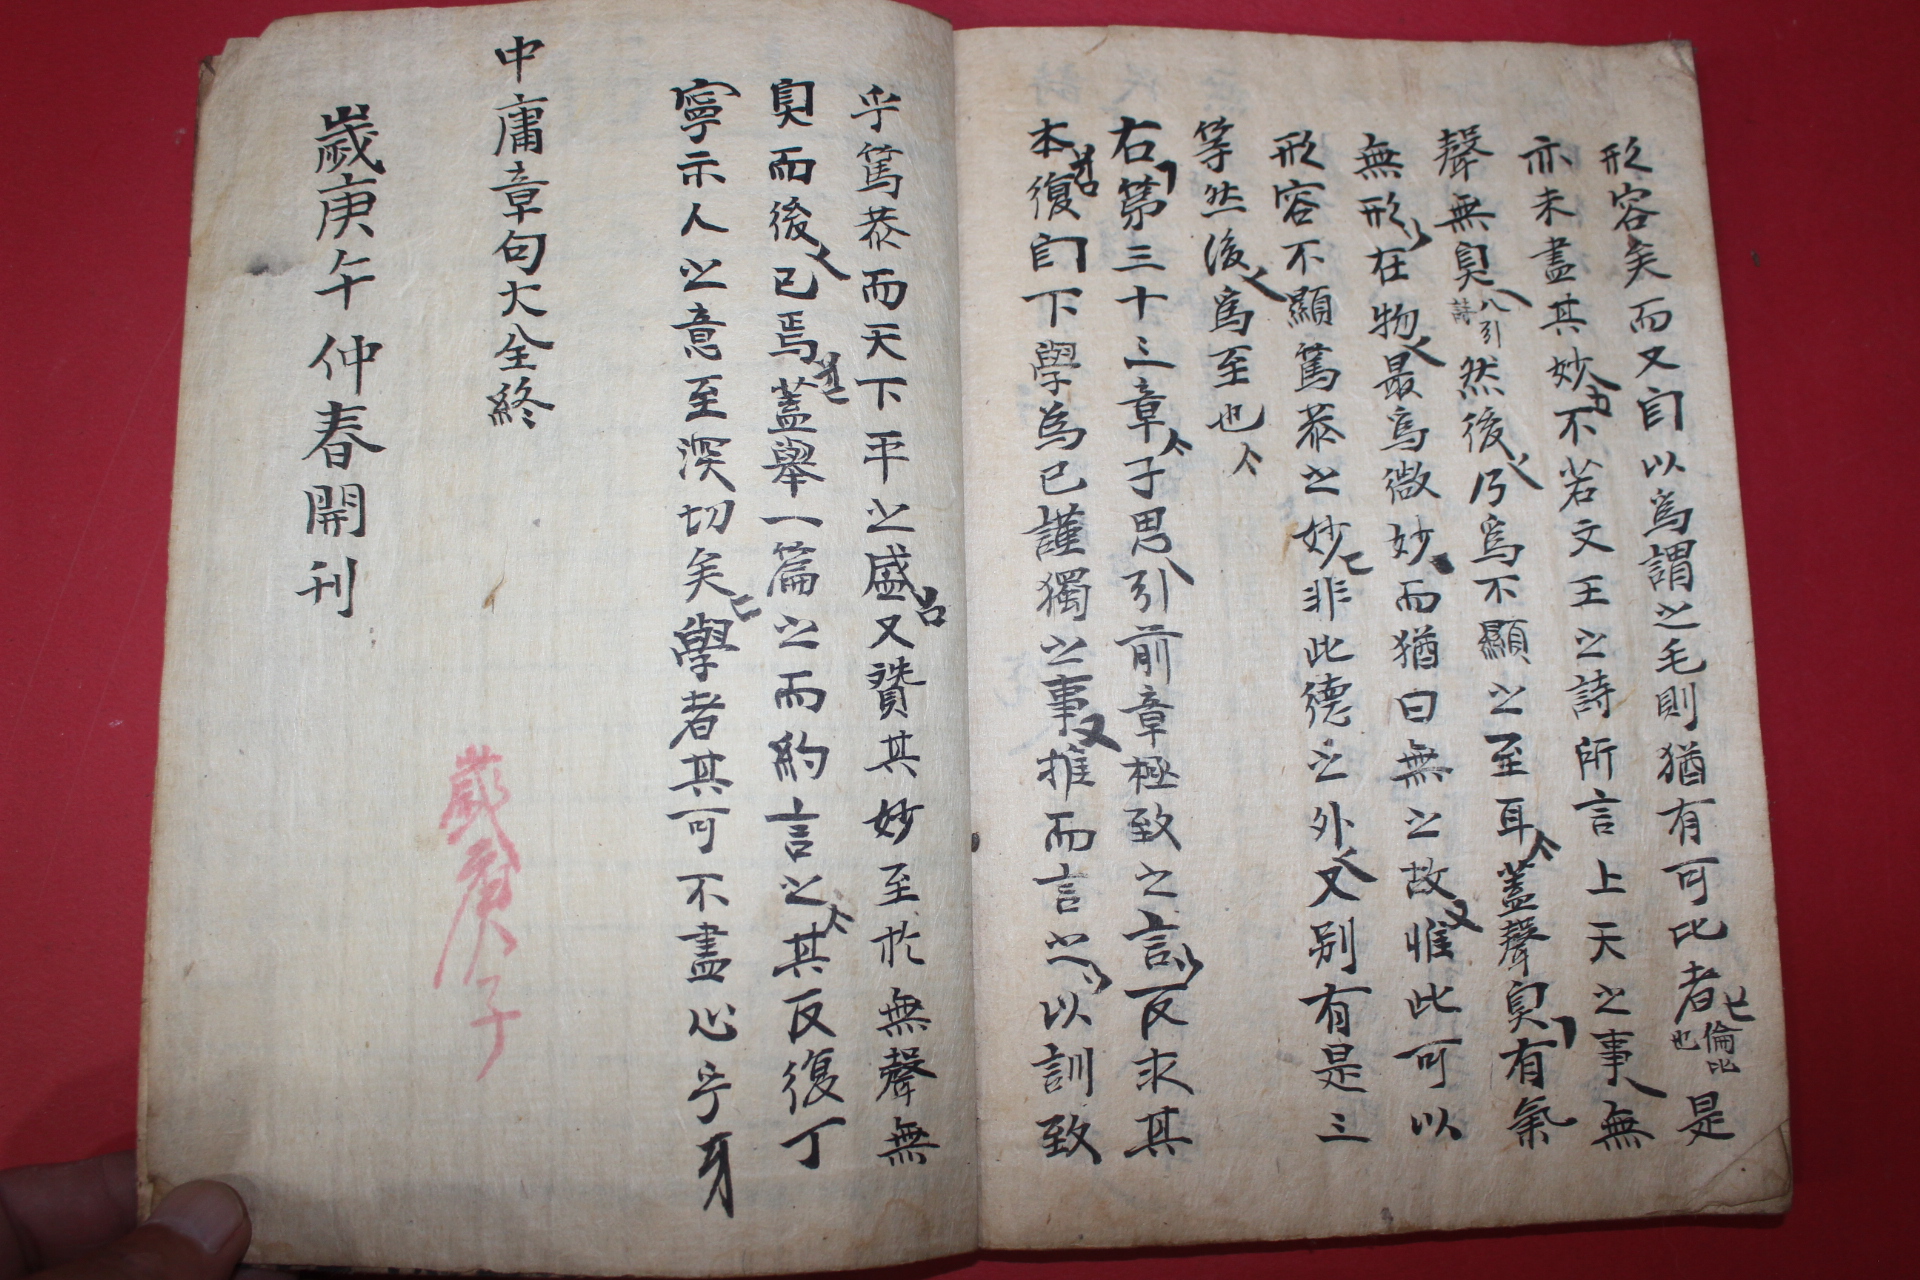 形容矣而又自以爲謂之毛則猶有可比者倫比也是
亦未盡其妙不若文王之詩所言上天之事無
聲無臭八引詩然後乃爲不顯之至耳蓋聲臭有氣
無形在物最爲微妙而猶曰無之故惟此可以
形容不顯篤恭之妙非此德之外又別有是三
等然後爲至也
右第三十三章子思引前章極致之言反求其
本復自下學為己謹獨之事推而言之以訓致
乎篤恭而天下平之盛又贊其妙至於無聲無
臭而後已焉蓋舉一篇之而約言之其反復丁
寧示人之意至深切矣學者其可不盡心乎
中庸章句大全終
歲庚午仲春開刊
歲庚子